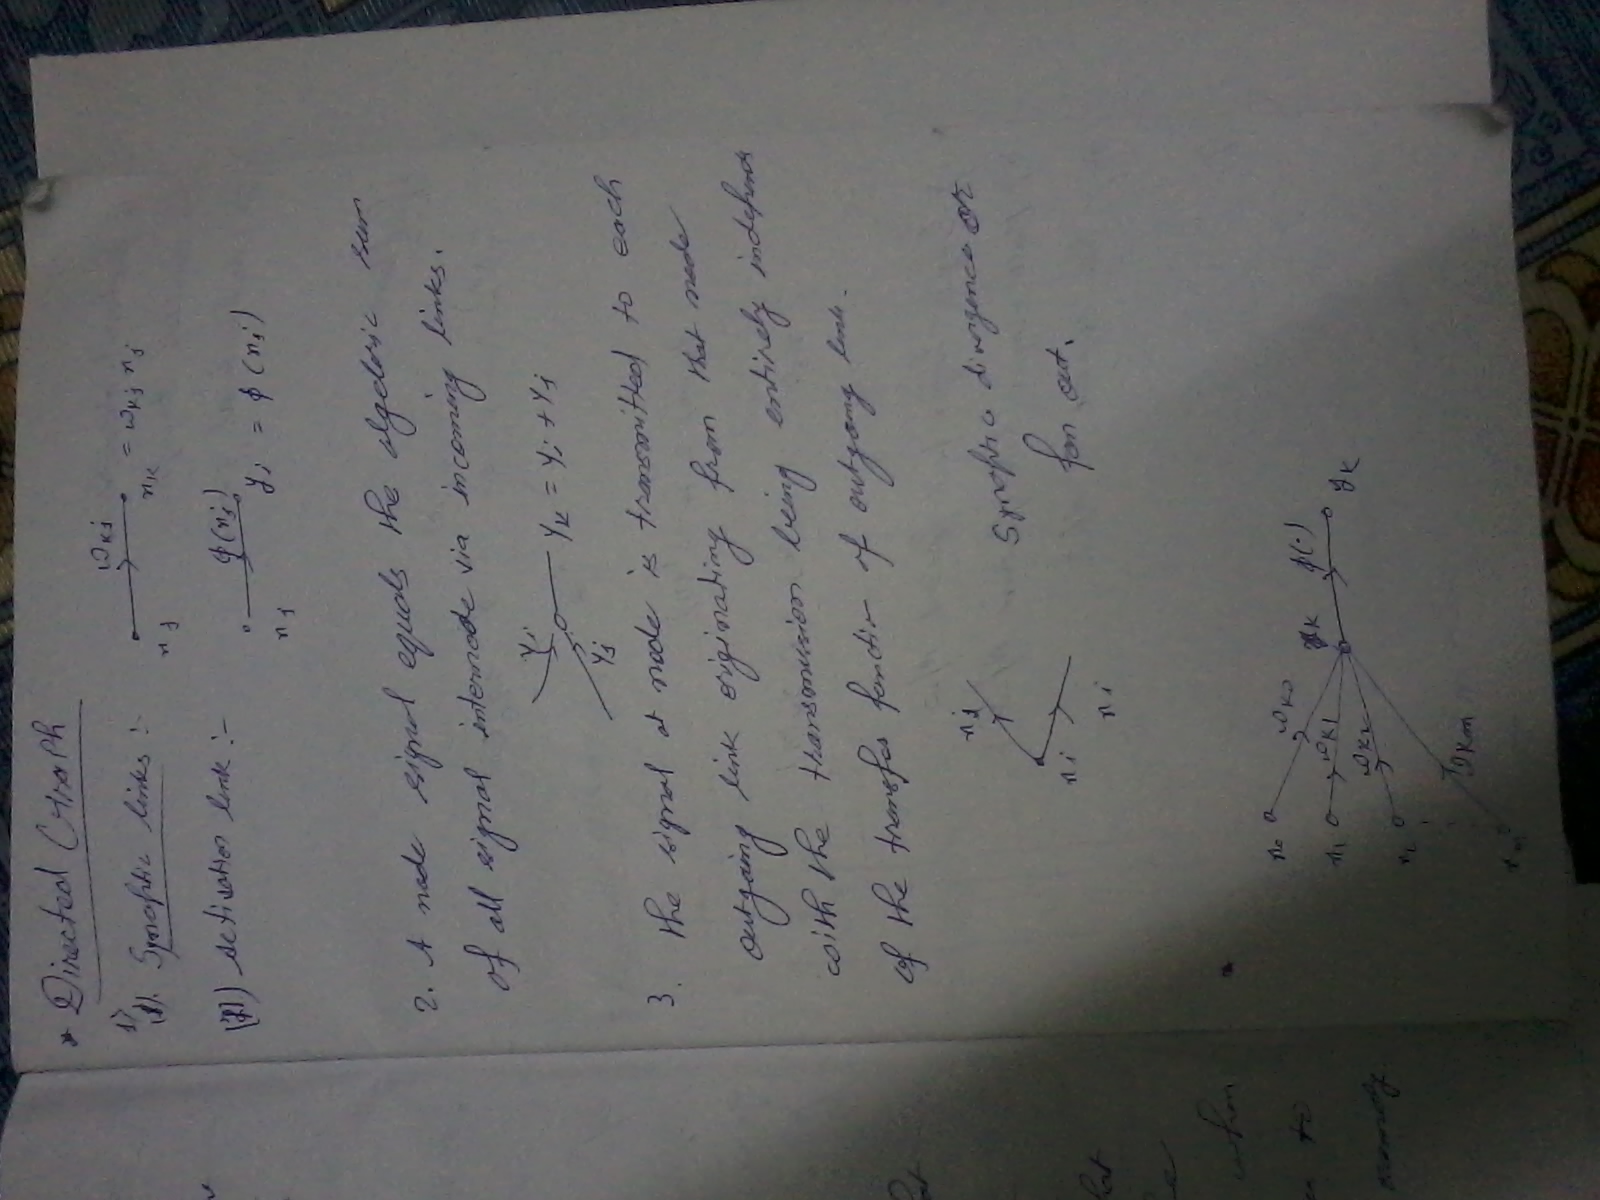 * Directed Graph
1) Synaptic links :-
wkj
xj
xk = wkj xj
Activation link :-
φ(xj)
xj
yj = φ(xj)
2. A node signal equals the algebric sum
of all signal internode via incoming links.
yi
yj
yk = yi + yj
3. the signal at node is transmitted to each
outgoing link originating from that node
with the transmission being entirely independ
of the transfer function of outgoing link.
xj
xi
xi
Synaptic divergence or
fan out.
*
x0
wk0
x1
wk1
wk2
wkm
φ(.)
yk
when
to